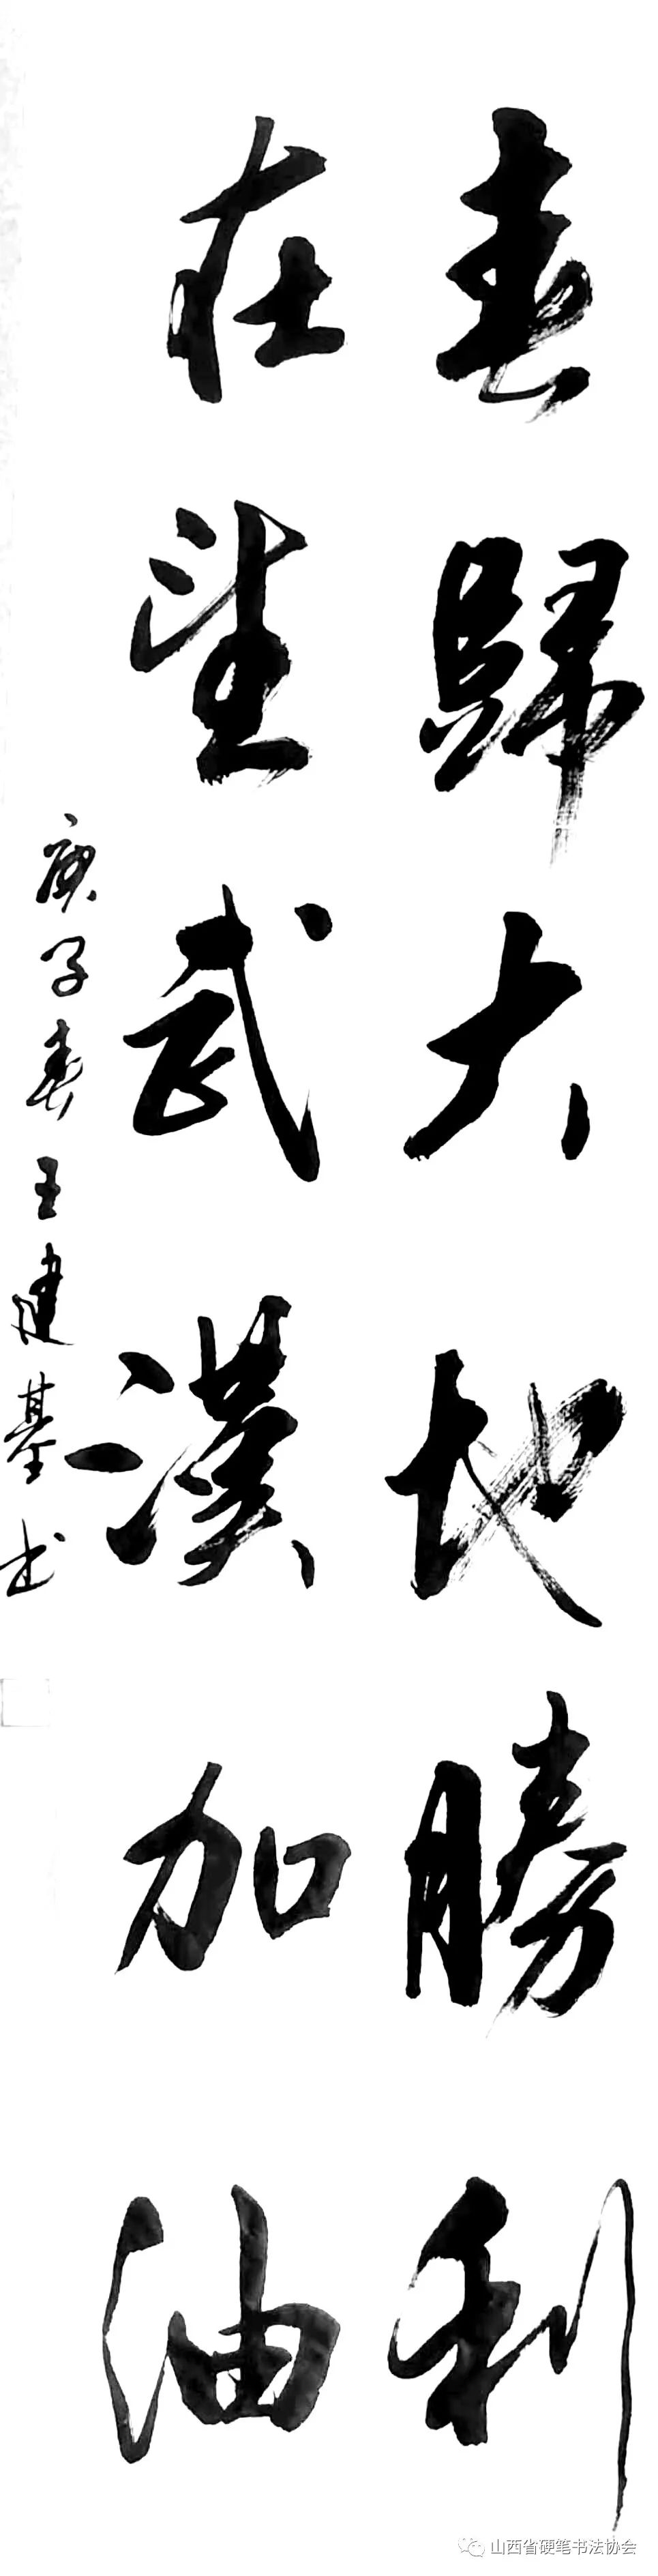 春歸大地勝利
在望武漢加油
庚子春王建基书
山西省硬笔书法协会